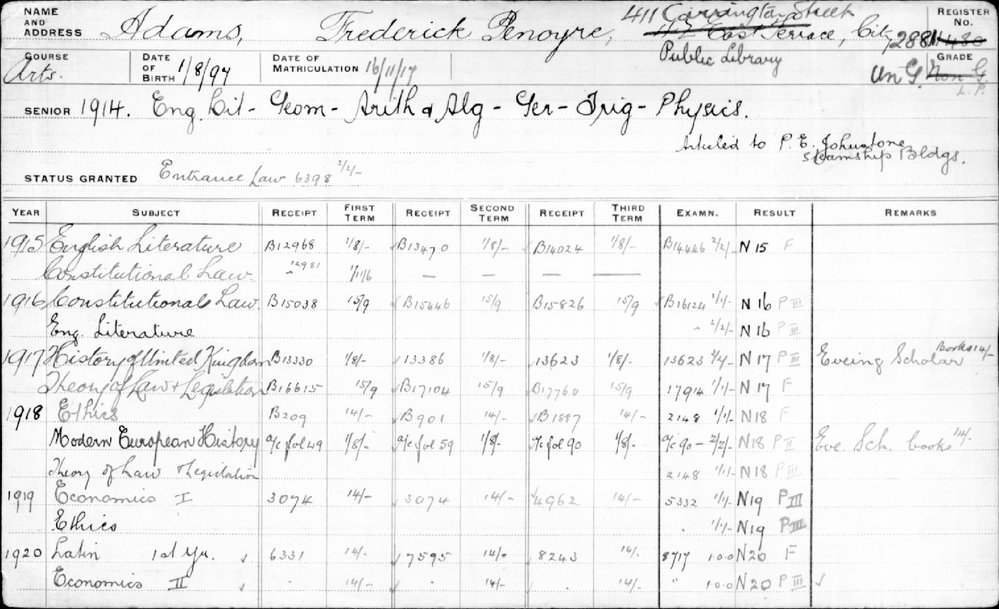 NAME AND ADDRESS Adams, Frederick Penoyre, 411 Carrington Street East Terrace, City REGISTER No. 12881 1430
Public Library
COURSE Arts. DATE OF BIRTH 1/8/97 DATE OF MATRICULATION 16/11/17 GRADE Un G. Non G L.P.
SENIOR 1914. Eng. Lit - Geom - Arith & Alg - Ger - Trig - Physics.
Articled to P. E. Johnstone
Steamship Bldgs.
STATUS GRANTED Entrance Law 6398 2/2/-
YEAR SUBJECT RECEIPT FIRST TERM RECEIPT SECOND TERM RECEIPT THIRD TERM EXAMN. RESULT REMARKS
1915 English Literature B12968 1/8/- B13470 1/8/- B14024 1/8/- B14446 2/2/- N 15 F
Constitutional Law " 12981 1/11/6 — — — —
1916 Constitutional Law. B15038 15/9 B15446 15/9 B15826 15/9 B16124 1/1/- N 16 P III
Eng. Literature " 2/2/- N 16 P III
1917 History of United Kingdom B13330 1/8/- 13386 1/8/- 13623 1/8/- 13623 2/2/- N 17 P III Eveing Scholar Books 14/-
Theory of Law & Legislation B16615 15/9 B17104 15/9 B17760 15/9 1794 1/1/- N 17 F
1918 Ethics B209 14/- B901 14/- B1887 14/- 2148 1/1/- N18 F
Modern European History a/c fol 49 1/8/- a/c fol 59 1/8/- a/c fol 90 1/8/- a/c 90 - 2/2/- N18 P II Eve. Sch. books 14/-
Theory of Law & Legislation 2148 1/1/- N18 P III
1919 Economics I 3074 14/- 3074 14/- 4962 14/- 5332 1/1/- N19 P III
Ethics " 1/1/- N19 P III
1920 Latin 1st Yr. 6331 14/- 7595 14/- 8243 14/- 8717 10.0 N20 F
Economics II 14/- 14/- 14/- " 10.0 N20 P III